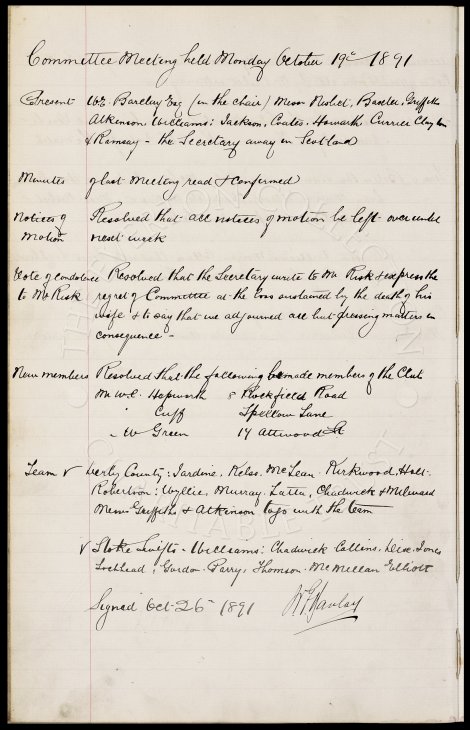 Committee Meeting held Monday October 19th 1891
Present W.E. Barclay Esq (in the chair) Messrs Nisbet, Baxter, Griffiths
Atkinson, Williams, Jackson, Coates, Howarth, Currier, Clayton
& Ramsay - the Secretary away in Scotland
Minutes of last meeting read & confirmed
Notices of Resolved that all notices of motion be left over until
Motion next week
Vote of condolence Resolved that the Secretary write to Mr Risk & express the
to Mr Risk regret of Committee at the loss sustained by the death of his
wife & to say that we adjourned all but pressing matters in
consequence -
New members Resolved that the following be made members of the Club
Mr W.C. Hepworth 8 Rockfield Road
" Cuff Spellow Lane
" W Green 14 Attwood St
Team v Derby County: Jardine, Kelso, McLean, Kirkwood, Holt,
Robertson, Wyllie, Murray, Latta, Chadwick & Milward
Messrs Griffiths & Atkinson to go with the team
v Stoke Swifts - Williams, Chadwick, Collins, Jones
Lochhead, Gordon, Parry, Thomson, McMillan, Elliott
Signed Oct 26th 1891 W E Barclay